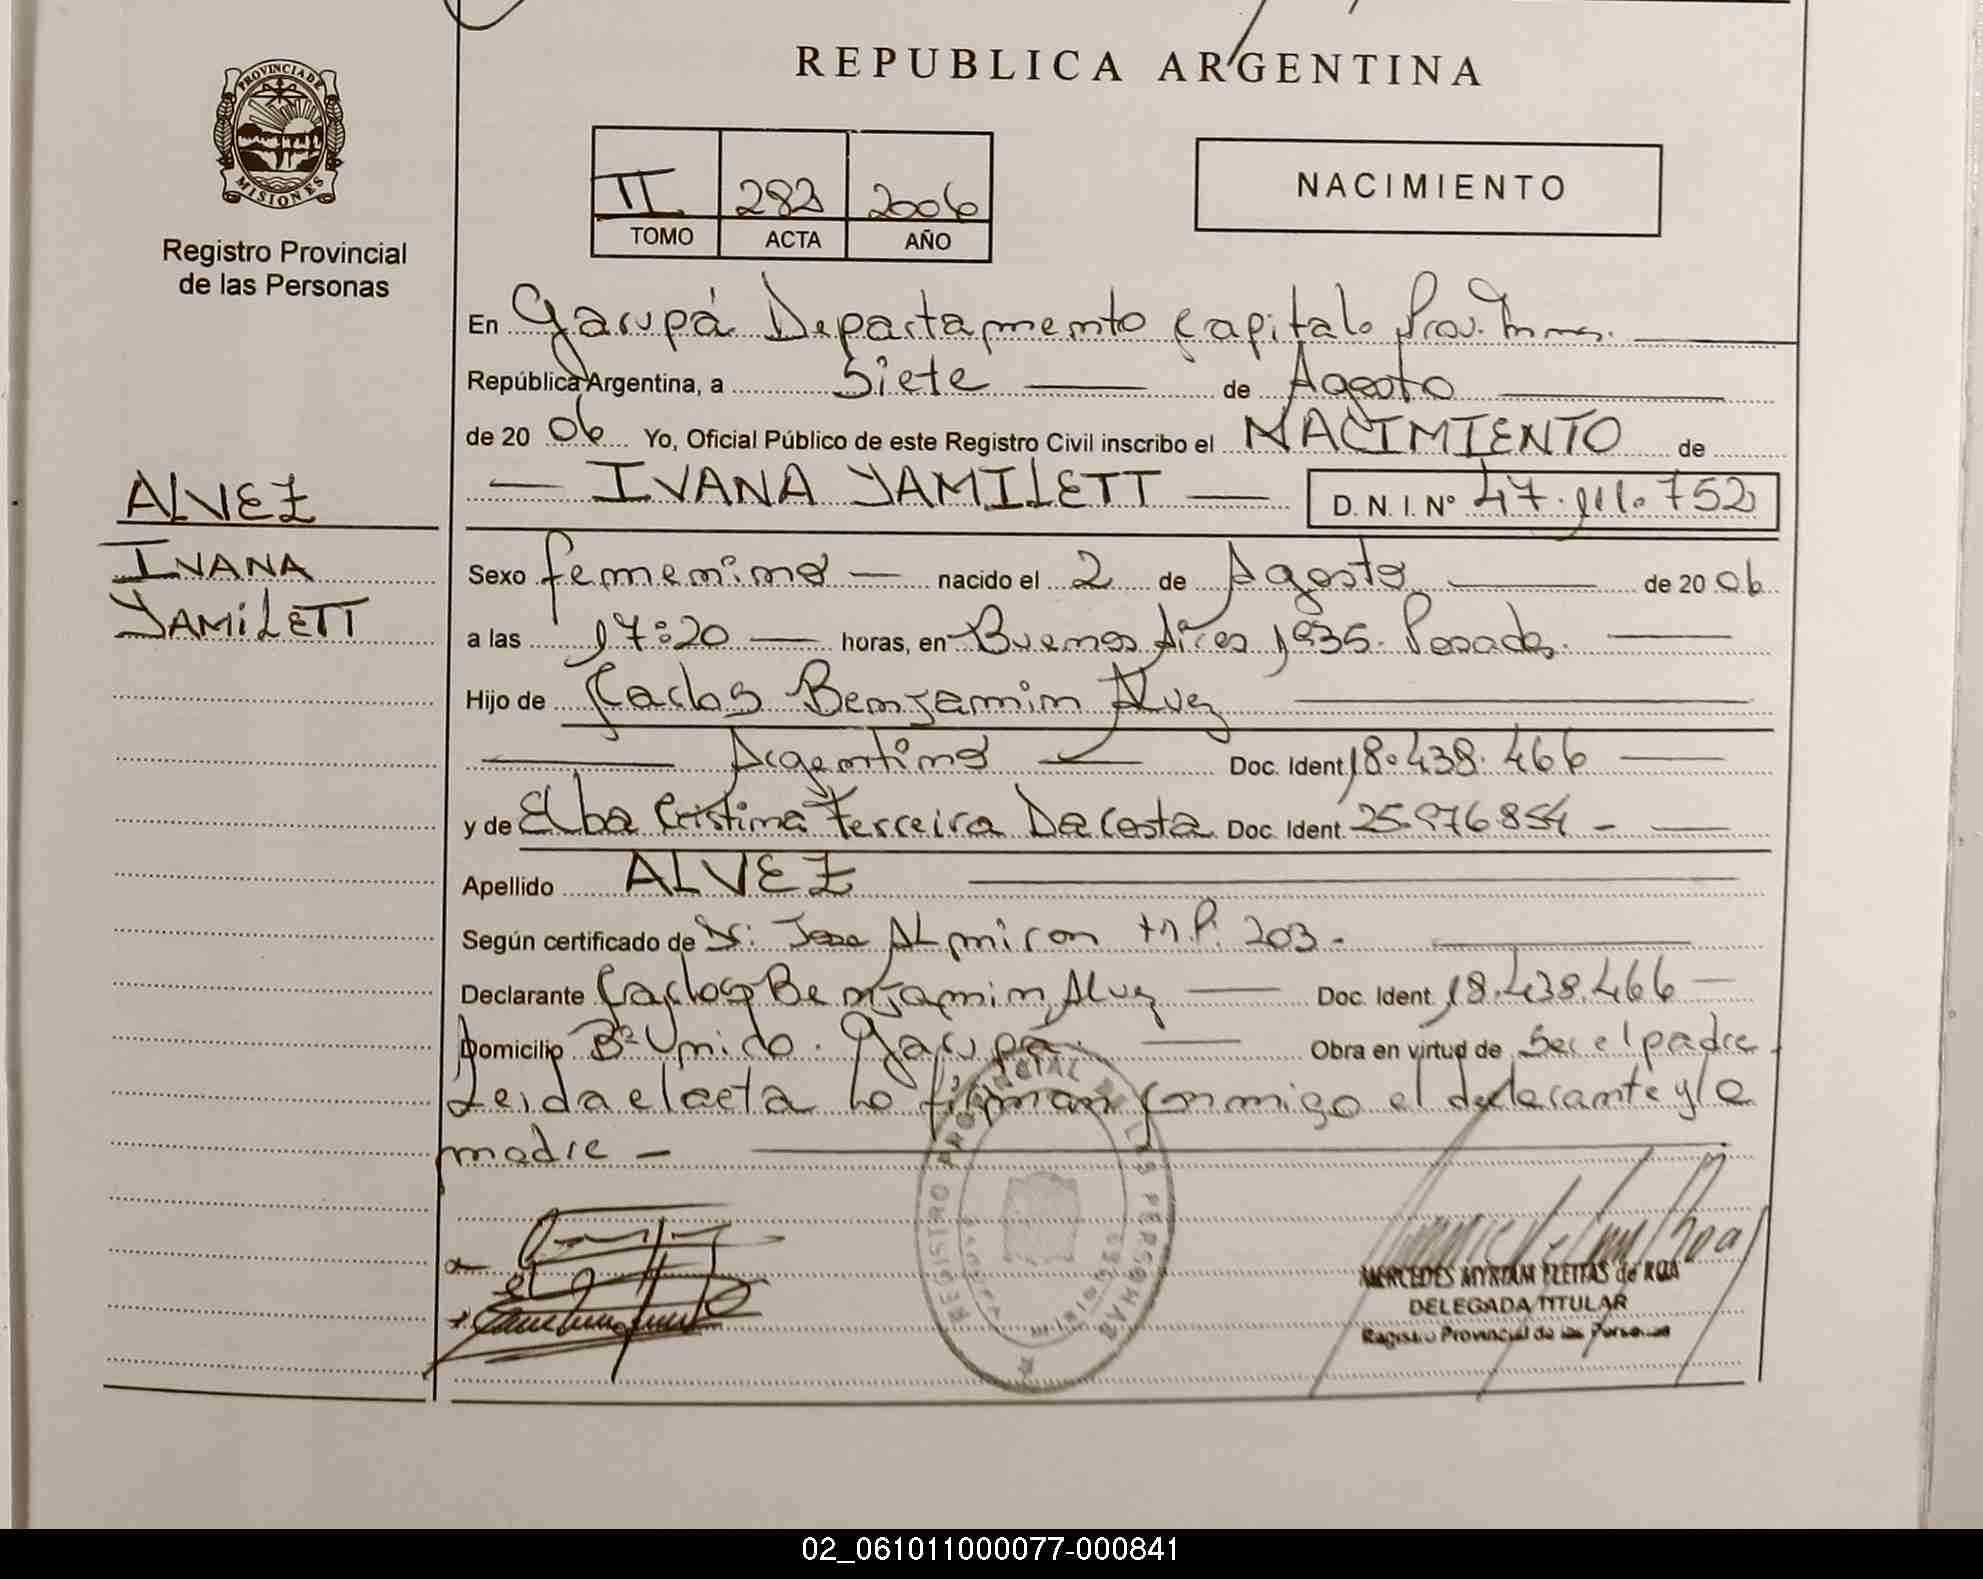 REPUBLICA ARGENTINA
PROVINCIA DE
MISIONES
Registro Provincial
de las Personas
II 282 2006
TOMO ACTA AÑO
NACIMIENTO
En Garupá Departamento Capital Prov. Mnes.
República Argentina, a Siete de Agosto
de 20 06 Yo, Oficial Público de este Registro Civil inscribo el NACIMIENTO de
IVANA YAMILETT D.N.I. Nº 47.111.752
ALVEZ
IVANA
YAMILETT
Sexo femenino nacido el 2 de Agosto de 20 06
a las 17:20 horas, en Buenos Aires 1935. Posadas.
Hijo de Carlos Benjamin Alvez
Argentino Doc. Ident 18.438.466
y de Elba Cristina Ferreira Da Costa Doc. Ident 25.976.854 -
Apellido ALVEZ
Según certificado de Dr. Jose ALmiron M.P. 203 -
Declarante Carlos Benjamin Alvez Doc. Ident 18.438.466
Domicilio Bº Unido. Garupá. Obra en virtud de Ser el padre.
Leida el acta lo firman conmigo el declarante y la
madre -
REGISTRO PROVINCIAL DE LAS PERSONAS
MISIONES
MERCEDES MYRIAM FLEITAS de ROA
DELEGADA TITULAR
Registro Provincial de las Personas
02_061011000077-000841